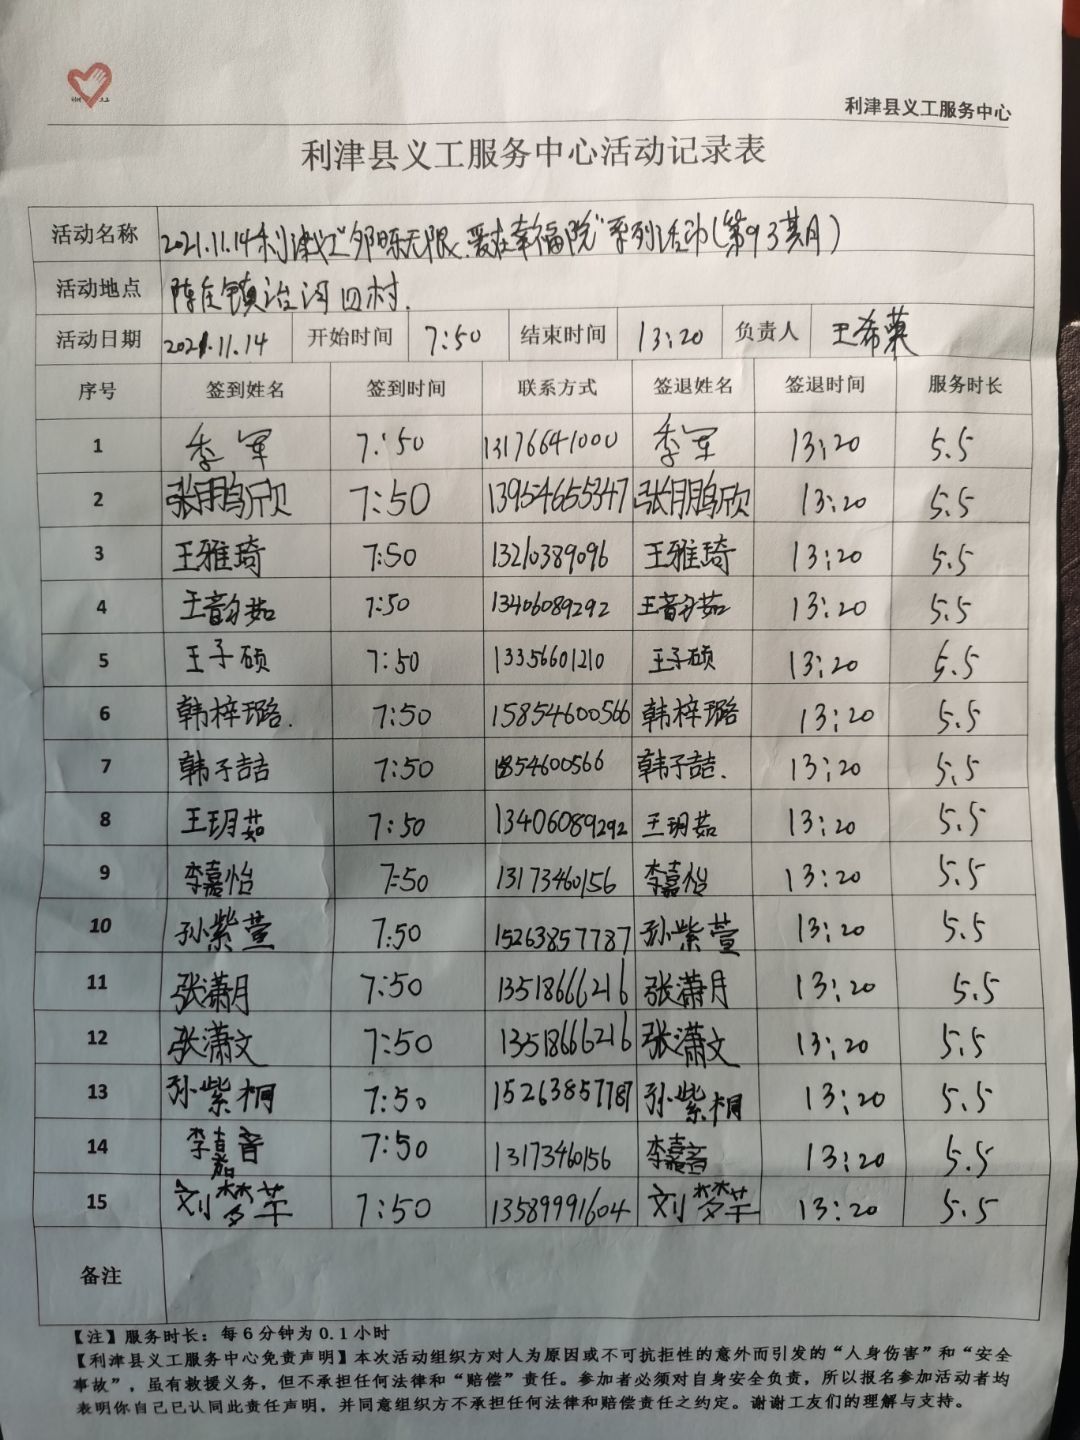 利津县义工服务中心
利津县义工服务中心活动记录表
活动名称 2021.11.14利津义工"邻晤无限、爱在幸福院"系列活动(第93期)
活动地点 陈庄镇治河四村.
活动日期 2021.11.14 开始时间 7:50 结束时间 13:20 负责人 王希蕖
序号 签到姓名 签到时间 联系方式 签退姓名 签退时间 服务时长
1 季军 7:50 13176641000 季军 13:20 5.5
2 张玥鸥欣 7:50 13954655347 张玥鸥欣 13:20 5.5
3 王雅琦 7:50 13210389096 王雅琦 13:20 5.5
4 王韵茹 7:50 13406089292 王韵茹 13:20 5.5
5 王子硕 7:50 13356601210 王子硕 13:20 5.5
6 韩梓璐. 7:50 15854600566 韩梓璐 13:20 5.5
7 韩子喆 7:50 854600566 韩子喆. 13:20 5.5
8 王玥茹 7:50 13406089292 王玥茹 13:20 5.5
9 李嘉怡 7:50 13173460156 李嘉怡 13:20 5.5
10 孙紫萱 7:50 15263857787 孙紫萱 13:20 5.5
11 张潇月 7:50 13518666216 张潇月 13:20 5.5
12 张潇文 7:50 13518666216 张潇文 13:20 5.5
13 孙紫桐 7:50 15263857787 孙紫桐 13:20 5.5
14 李嘉音 7:50 13173460156 李嘉音 13:20 5.5
15 刘梦芊 7:50 13589991604 刘梦芊 13:20 5.5
备注
【注】服务时长：每6分钟为0.1小时
【利津县义工服务中心免责声明】本次活动组织方对人为原因或不可抗拒性的意外而引发的“人身伤害”和“安全
事故”，虽有救援义务，但不承担任何法律和“赔偿”责任。参加者必须对自身安全负责，所以报名参加活动者均
表明你自己已认同此责任声明，并同意组织方不承担任何法律和赔偿责任之约定。谢谢工友们的理解与支持。